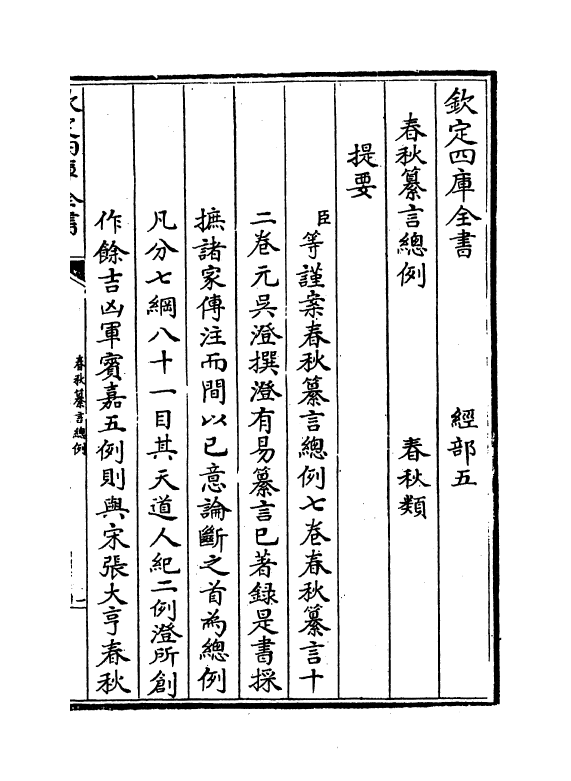 欽定四庫全書　　　經部五
春秋纂言總例　　　春秋類
提要
臣等謹案春秋纂言總例七卷春秋纂言十
二卷元吳澄撰澄有易纂言已著録是書採
摭諸家傳注而間以已意論斷之首為總例
凡分七綱八十一目其天道人紀二例澄所創
作餘吉凶軍賓嘉五例則與宋張大亨春秋
春秋纂言總例